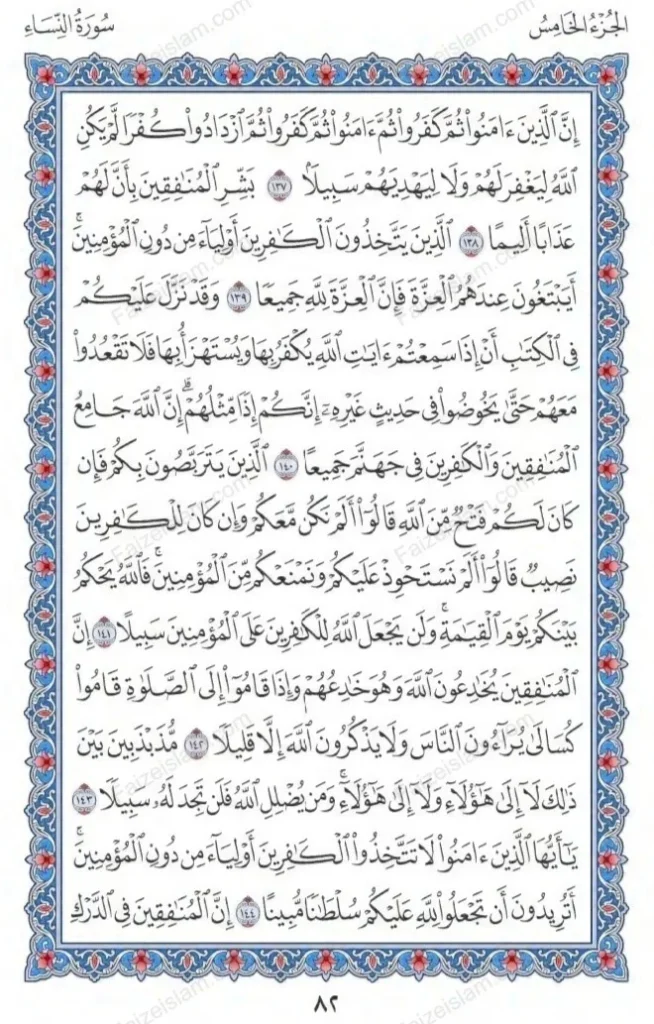 الجُزْءُ الخَامِسُ
سُورَةُ النِّسَاءِ
إِنَّ ٱلَّذِينَ ءَامَنُوا۟ ثُمَّ كَفَرُوا۟ ثُمَّ ءَامَنُوا۟ ثُمَّ كَفَرُوا۟ ثُمَّ ٱزْدَادُوا۟ كُفْرًا لَّمْ يَكُنِ
ٱللَّهُ لِيَغْفِرَ لَهُمْ وَلَا لِيَهْدِيَهُمْ سَبِيلًۢا ١٣٧ بَشِّرِ ٱلْمُنَٰفِقِينَ بِأَنَّ لَهُمْ
عَذَابًا أَلِيمًا ١٣٨ ٱلَّذِينَ يَتَّخِذُونَ ٱلْكَٰفِرِينَ أَوْلِيَآءَ مِن دُونِ ٱلْمُؤْمِنِينَ ۚ
أَيَبْتَغُونَ عِندَهُمُ ٱلْعِزَّةَ فَإِنَّ ٱلْعِزَّةَ لِلَّهِ جَمِيعًا ١٣٩ وَقَدْ نَزَّلَ عَلَيْكُمْ
فِى ٱلْكِتَٰبِ أَنْ إِذَا سَمِعْتُمْ ءَايَٰتِ ٱللَّهِ يُكْفَرُ بِهَا وَيُسْتَهْزَأُ بِهَا فَلَا تَقْعُدُوا۟
مَعَهُمْ حَتَّىٰ يَخُوضُوا۟ فِى حَدِيثٍ غَيْرِهِۦٓ ۚ إِنَّكُمْ إِذًا مِّثْلُهُمْ ۗ إِنَّ ٱللَّهَ جَامِعُ
ٱلْمُنَٰفِقِينَ وَٱلْكَٰفِرِينَ فِى جَهَنَّمَ جَمِيعًا ١٤٠ ٱلَّذِينَ يَتَرَبَّصُونَ بِكُمْ فَإِن
كَانَ لَكُمْ فَتْحٌ مِّنَ ٱللَّهِ قَالُوٓا۟ أَلَمْ نَكُن مَّعَكُمْ وَإِن كَانَ لِلْكَٰفِرِينَ
نَصِيبٌ قَالُوٓا۟ أَلَمْ نَسْتَحْوِذْ عَلَيْكُمْ وَنَمْنَعْكُم مِّنَ ٱلْمُؤْمِنِينَ ۚ فَٱللَّهُ يَحْكُمُ
بَيْنَكُمْ يَوْمَ ٱلْقِيَٰمَةِ ۗ وَلَن يَجْعَلَ ٱللَّهُ لِلْكَٰفِرِينَ عَلَى ٱلْمُؤْمِنِينَ سَبِيلًا ١٤١ إِنَّ
ٱلْمُنَٰفِقِينَ يُخَٰدِعُونَ ٱللَّهَ وَهُوَ خَٰدِعُهُمْ وَإِذَا قَامُوٓا۟ إِلَى ٱلصَّلَوٰةِ قَامُوا۟
كُسَالَىٰ يُرَآءُونَ ٱلنَّاسَ وَلَا يَذْكُرُونَ ٱللَّهَ إِلَّا قَلِيلًا ١٤٢ مُّذَبْذَبِينَ بَيْنَ
ذَٰلِكَ لَآ إِلَىٰ هَٰٓؤُلَآءِ وَلَآ إِلَىٰ هَٰٓؤُلَآءِ ۚ وَمَن يُضْلِلِ ٱللَّهُ فَلَن تَجِدَ لَهُۥ سَبِيلًا ١٤٣
يَٰٓأَيُّهَا ٱلَّذِينَ ءَامَنُوا۟ لَا تَتَّخِذُوا۟ ٱلْكَٰفِرِينَ أَوْلِيَآءَ مِن دُونِ ٱلْمُؤْمِنِينَ ۚ
أَتُرِيدُونَ أَن تَجْعَلُوا۟ لِلَّهِ عَلَيْكُمْ سُلْطَٰنًا مُّبِينًا ١٤٤ إِنَّ ٱلْمُنَٰفِقِينَ فِى ٱلدَّرْكِ
٨٢
Faizeislam.com